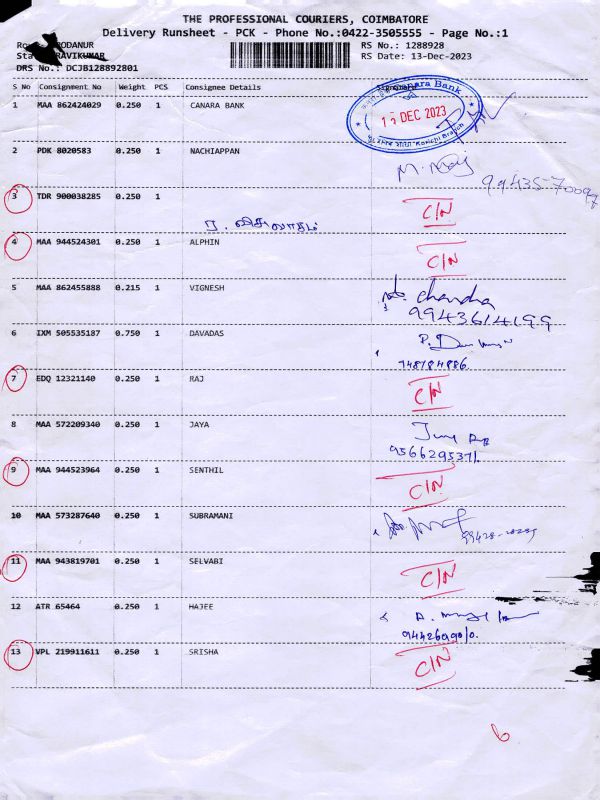 THE PROFESSIONAL COURIERS, COIMBATORE
Delivery Runsheet - PCK - Phone No.:0422-3505555 - Page No.:1
PODANUR RS No.: 1288928
RAVIKUMAR RS Date: 13-Dec-2023
DRS No.: DCJB128892801
S No Consignment No Weight PCS Consignee Details
1 MAA 862424029 0.250 1 CANARA BANK
Canara Bank
13 DEC 2023
2 PDK 8020583 0.250 1 NACHIAPPAN
3 TDR 900038285 0.250 1 C/N
4 MAA 944524301 0.250 1 ALPHIN C/N
5 MAA 862455888 0.215 1 VIGNESH chandra
9943614199
6 IXM 505535187 0.750 1 DAVADAS
7 EDQ 12321140 0.250 1 RAJ C/N
8 MAA 572209340 0.250 1 JAYA
9566295371.
9 MAA 944523964 0.250 1 SENTHIL C/N
10 MAA 573287640 0.250 1 SUBRAMANI
11 MAA 943819701 0.250 1 SELVABI C/N
12 ATR 65464 0.250 1 HAJEE
13 VPL 219911611 0.250 1 SRISHA C/N
6